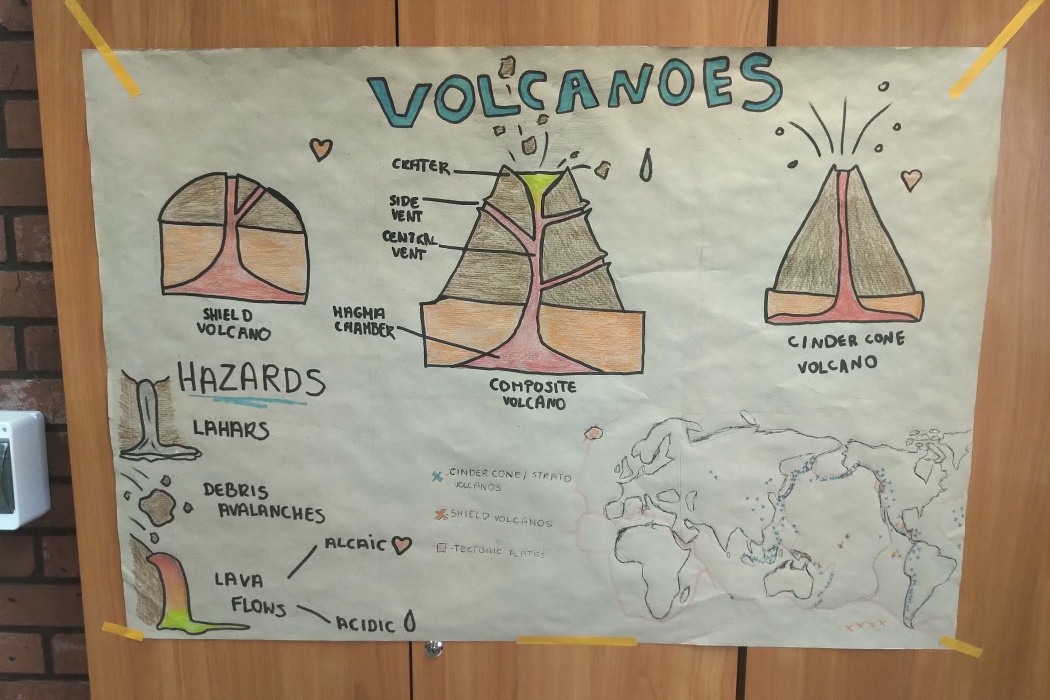 VOLCANOES
CRATER
SIDE
VENT
CENTRAL
VENT
MAGMA
CHAMBER
SHIELD
VOLCANO
COMPOSITE
VOLCANO
CINDER CONE
VOLCANO
HAZARDS
LAHARS
DEBRIS
AVALANCHES
LAVA
FLOWS
ALCAIC
ACIDIC
CINDER CONE / STRATO
VOLCANOS
SHIELD VOLCANOS
-TECTONIC PLATES